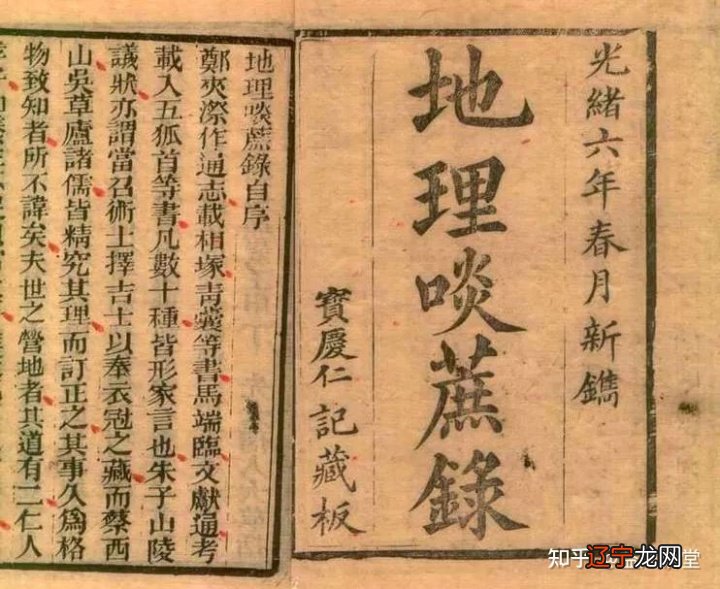 光緒六年春月新鐫
地理啖蔗錄
寶慶仁記藏板
地理啖蔗錄自序
鄭夾漈作通志載相塚青囊等書馬端臨文獻通考
載入五狐首等書凡數十種皆形家言也朱子山陵
議狀亦謂當召術士擇吉土以奉衣冠之藏而蔡西
山吳草廬諸儒皆精究其理而訂正之其事久爲格
物致知者所不諱矣夫世之營地者其道有二仁人
知乎
辽宁龙网
堂